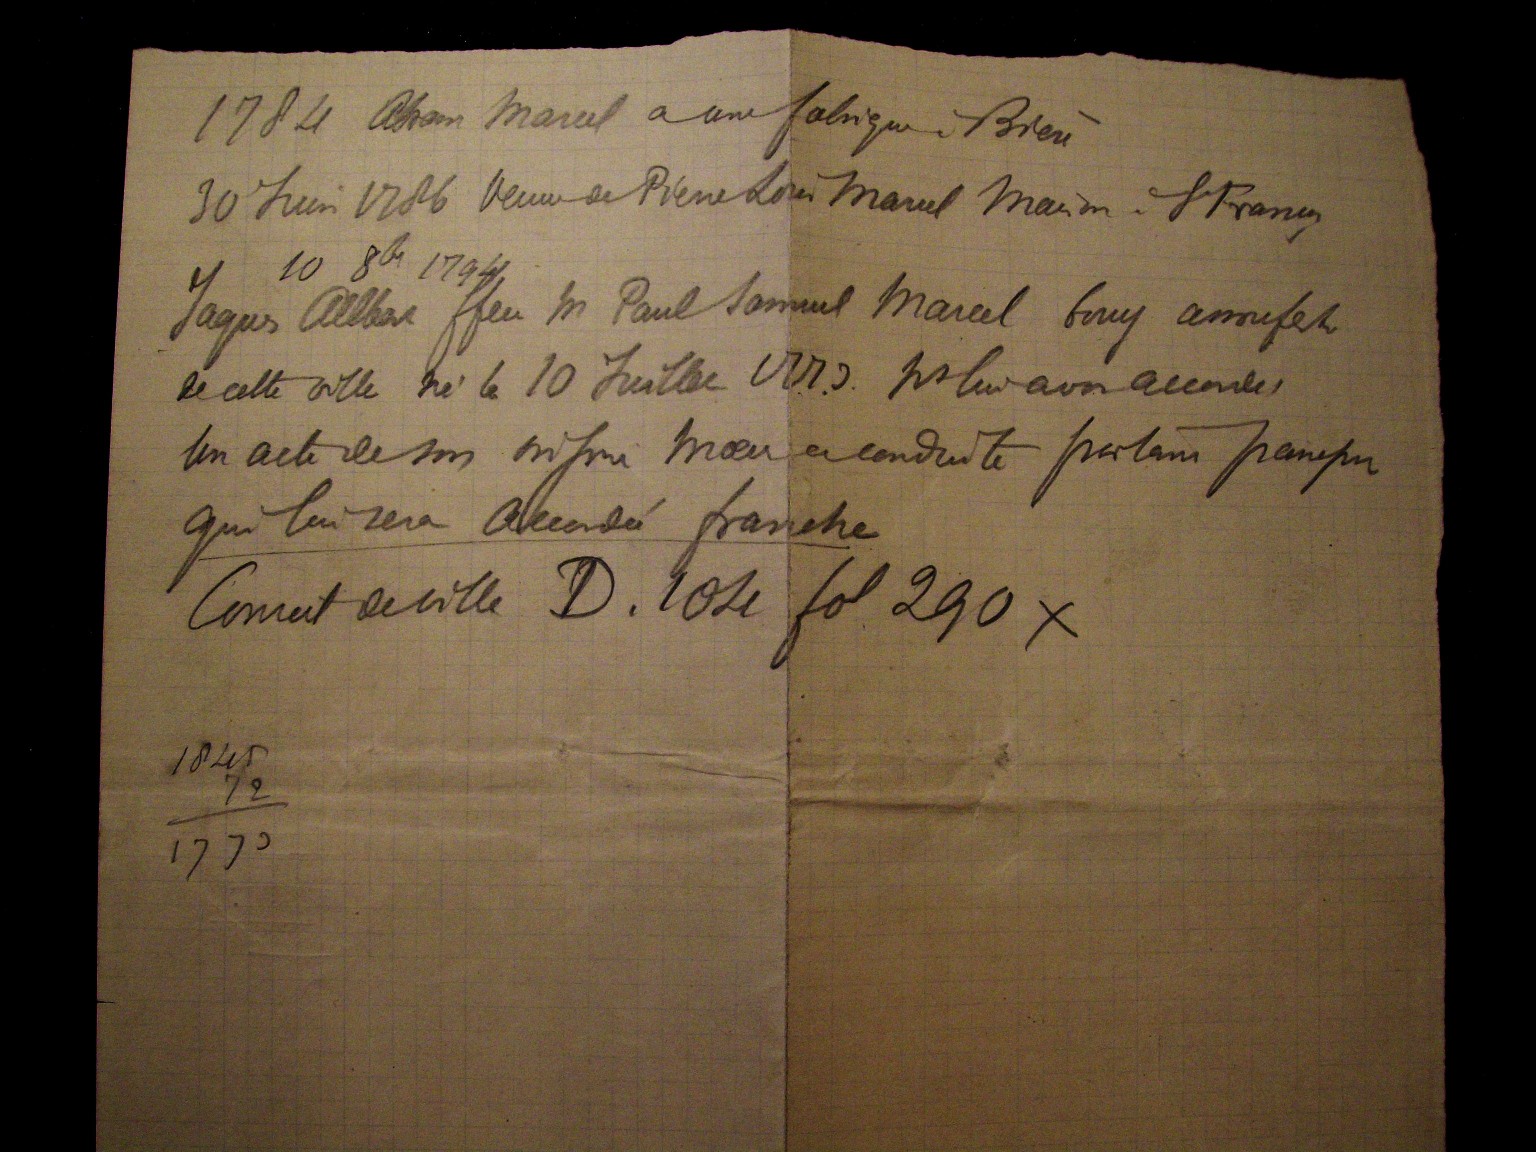 1784 Abram Marcel a une fabrique à Bière
30 Juin 1786 Veuve de Pierre Louis Marcel Maison à St François
10 8bre 1794
Jaques Albert ffeu M Paul Samuel Marcel bourg
de cette ville né le 10 Juillet 1773. Ns lui avons accordé
Un acte de son origine Moeurs conduite portant
qui lui sera accordé franche
Conseil de ville D. 104 fol 290 x
1845
72
1773